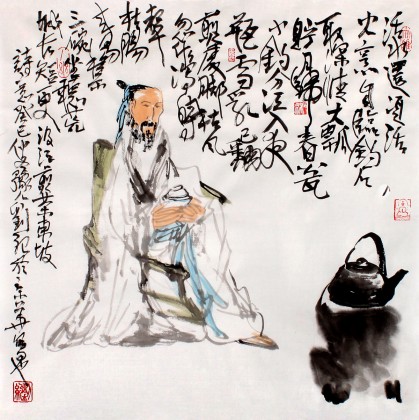 活水還須活
火烹自臨釣石
取深清大瓢
貯月歸春甕
小杓分江入夜
瓶雪乳已翻
煎處腳松風
忽作瀉時
聲
枯腸
未易禁
三碗坐聽荒
城長短更汲江煎茶東坡
詩意癸巳仲夏於京華